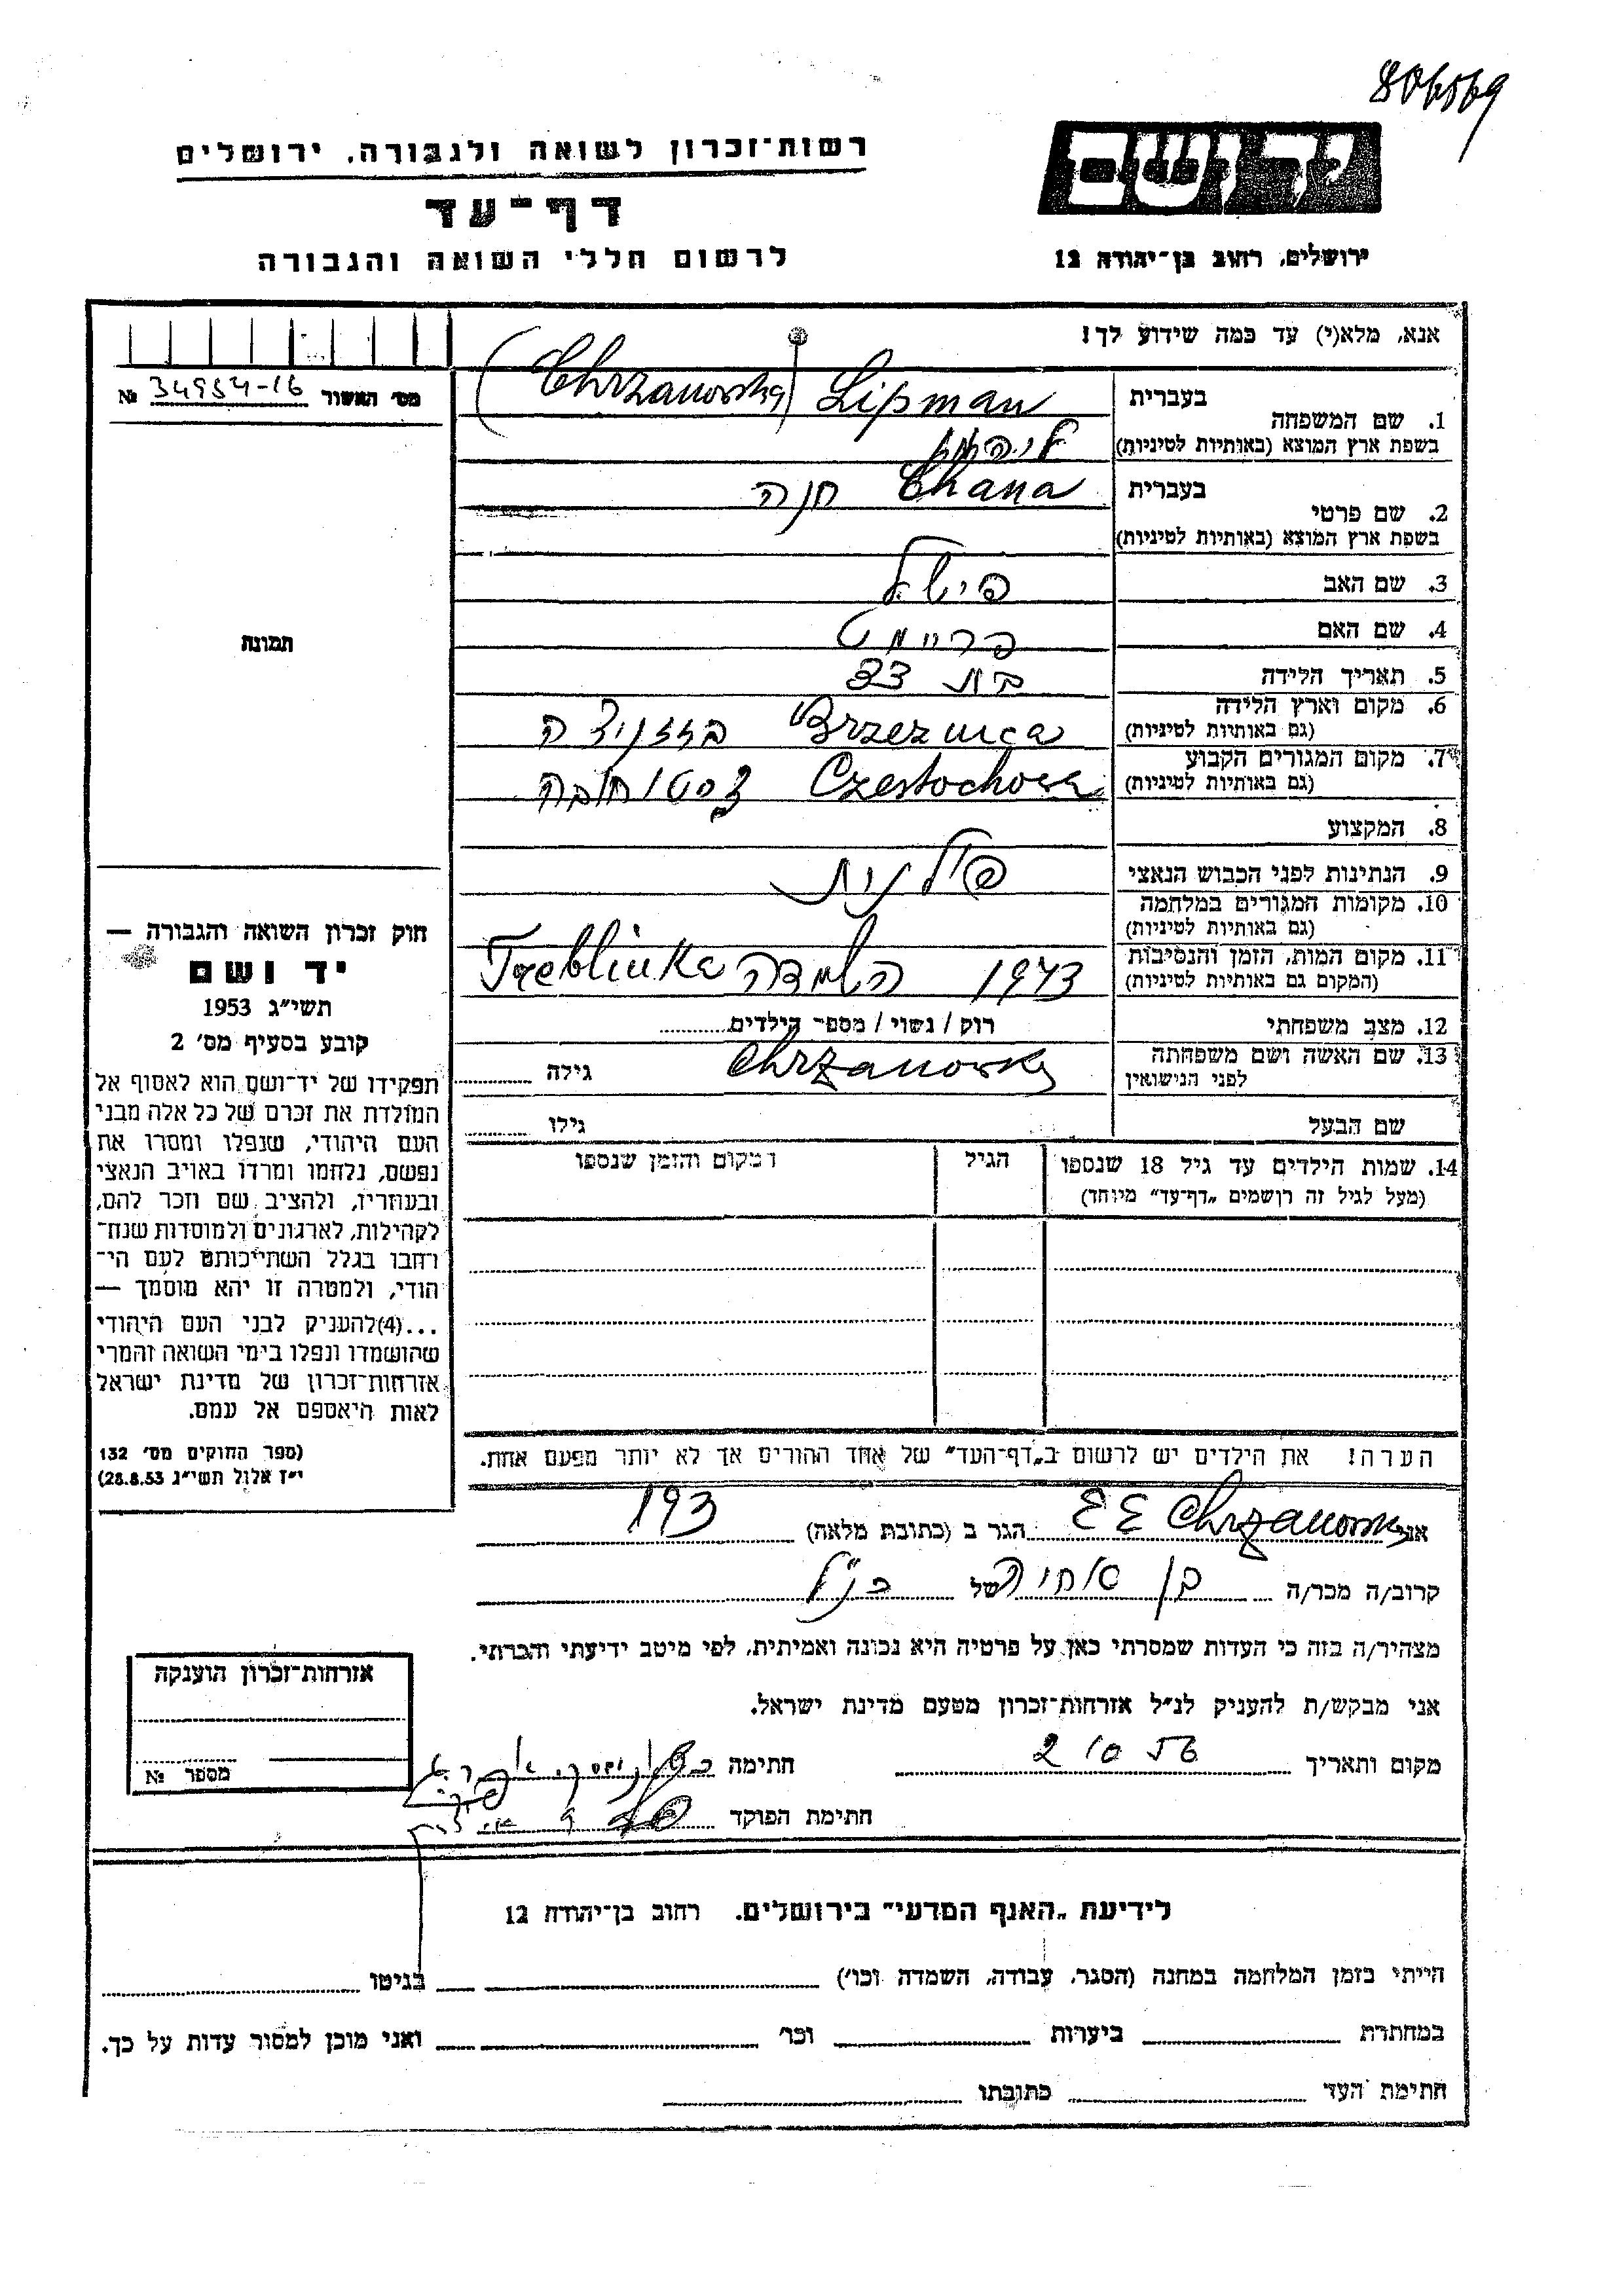 806569
יד ושם
רשות-זכרון לשואה ולגבורה, ירושלים
דף-עד
לרשום חללי השואה והגבורה
ירושלים, רחוב בן-יהודה 12
אנא, מלא(י) עד כמה שידוע לך!
מס' האשור 34954-16 №
1. שם המשפחה בעברית
Lipman (Chrzanowska)
בשפת ארץ המוצא (באותיות לטיניות)
ליפמן
2. שם פרטי בעברית
Chana חנה
בשפת ארץ המוצא (באותיות לטיניות)
3. שם האב
פישל
4. שם האם
5. תאריך הלידה
בת 33
6. מקום וארץ הלידה
(גם באותיות לטיניות)
Brzeznica
7. מקום המגורים הקבוע
(גם באותיות לטיניות)
Czestochowa צסטוחובה
8. המקצוע
9. הנתינות לפני הכבוש הנאצי
פולנית
10. מקומות המגורים במלחמה
(גם באותיות לטיניות)
11. מקום המות, הזמן והנסיבות
(המקום גם באותיות לטיניות)
1943 השמדה Treblinka
12. מצב משפחתי
רוק / נשוי / מספר הילדים
13. שם האשה ושם משפחתה
לפני הנישואין
Chrzanowsky גילה
שם הבעל גילו
14. שמות הילדים עד גיל 18 שנספו
(מעל לגיל זה רושמים „דף-עד" מיוחד)
הגיל
המקום והזמן שנספו
הערה! את הילדים יש לרשום ב„דף-העד" של אחד ההורים אך לא יותר מפעם אחת.
תמונה
חוק זכרון השואה והגבורה —
יד ושם
תשי"ג 1953
קובע בסעיף מס' 2
תפקידו של יד-ושם הוא לאסוף אל
המולדת את זכרם של כל אלה מבני
העם היהודי, שנפלו ומסרו את
נפשם, נלחמו ומרדו באויב הנאצי
ובעוזריו, ולהציב שם וזכר להם,
לקהילות, לארגונים ולמוסדות שנח-
רחבו בגלל השתייכותם לעם הי-
הודי, ולמטרה זו יהא מוסמך —
...(4)להעניק לבני העם היהודי
שהושמדו ונפלו בימי השואה והמרי
אזרחות-זכרון של מדינת ישראל
לאות היאספם אל עמם.
(ספר החוקים מס' 132
י"ז אלול תשי"ג 28.8.53)
אני Chrzanowski הגר ב (כתובת מלאה) 193
קרוב/ה מכר/ה בן אחיה של הנ"ל
מצהיר/ה בזה כי העדות שמסרתי כאן על פרטיה היא נכונה ואמיתית, לפי מיטב ידיעתי והכרתי.
אני מבקש/ת להעניק לנ"ל אזרחות-זכרון מטעם מדינת ישראל.
מקום ותאריך 2 10 56 חתימה
חתימת הפוקד
אזרחות-זכרון הוענקה
מספר №
לידיעת „האגף המדעי" בירושלים. רחוב בן-יהודה 12
הייתי בזמן המלחמה במחנה (הסגר, עבודה, השמדה וכו') בגיטו
במחתרת ביערות וכו' ואני מוכן למסור עדות על כך.
חתימת העד כתובתו